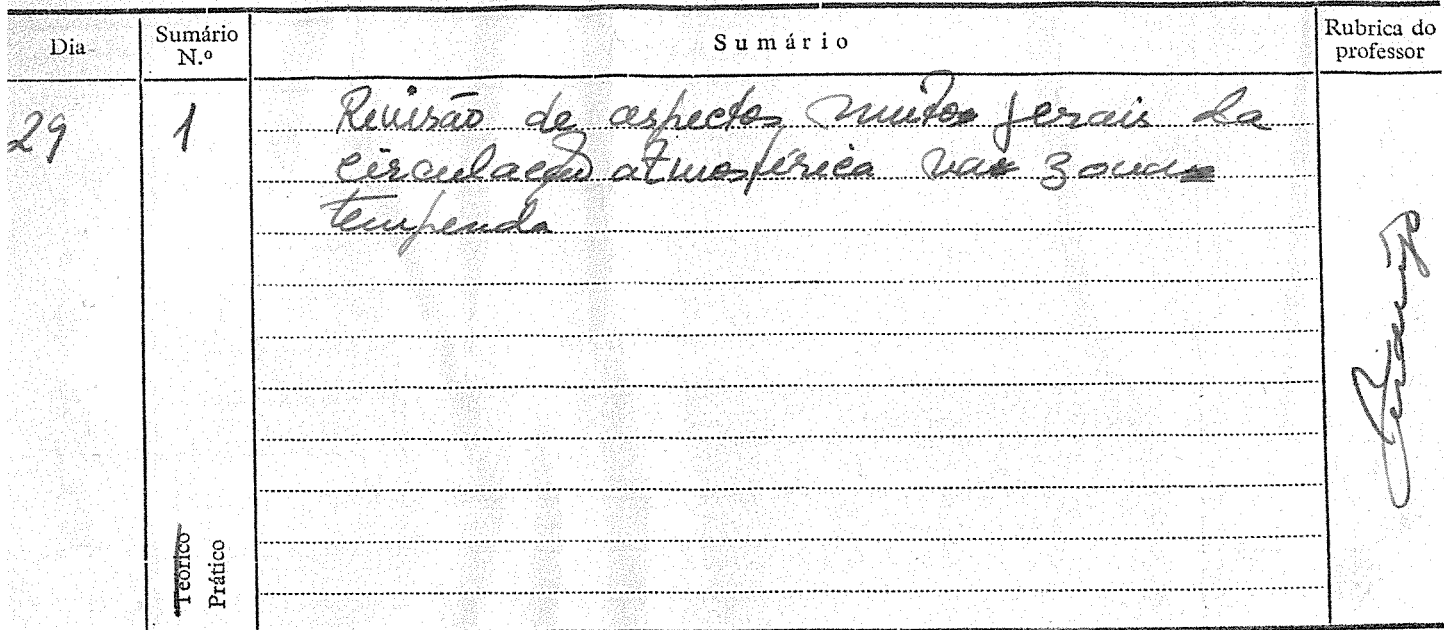 Dia
Sumário
N.º
Sumário
Rubrica do
professor
29
1
Revisão de aspectos muito gerais da
circulação atmosférica na zona
temperada
Teórico
Prático